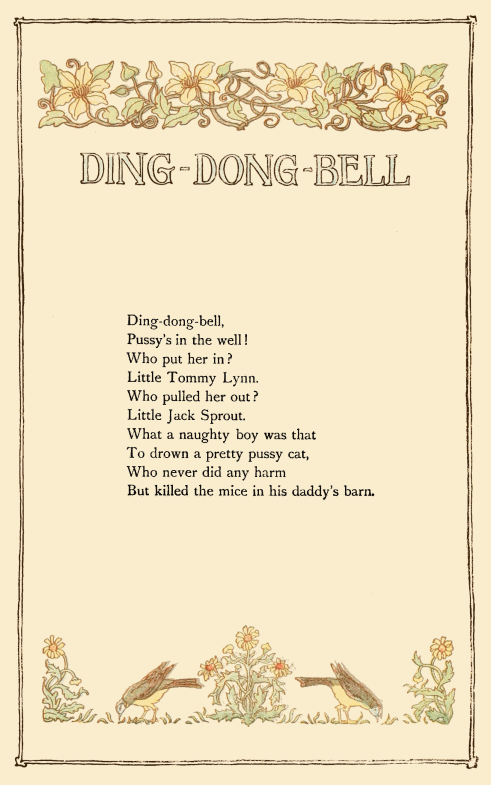 DING-DONG-BELL
Ding-dong-bell,
Pussy's in the well!
Who put her in?
Little Tommy Lynn.
Who pulled her out?
Little Jack Sprout.
What a naughty boy was that
To drown a pretty pussy cat,
Who never did any harm
But killed the mice in his daddy's barn.